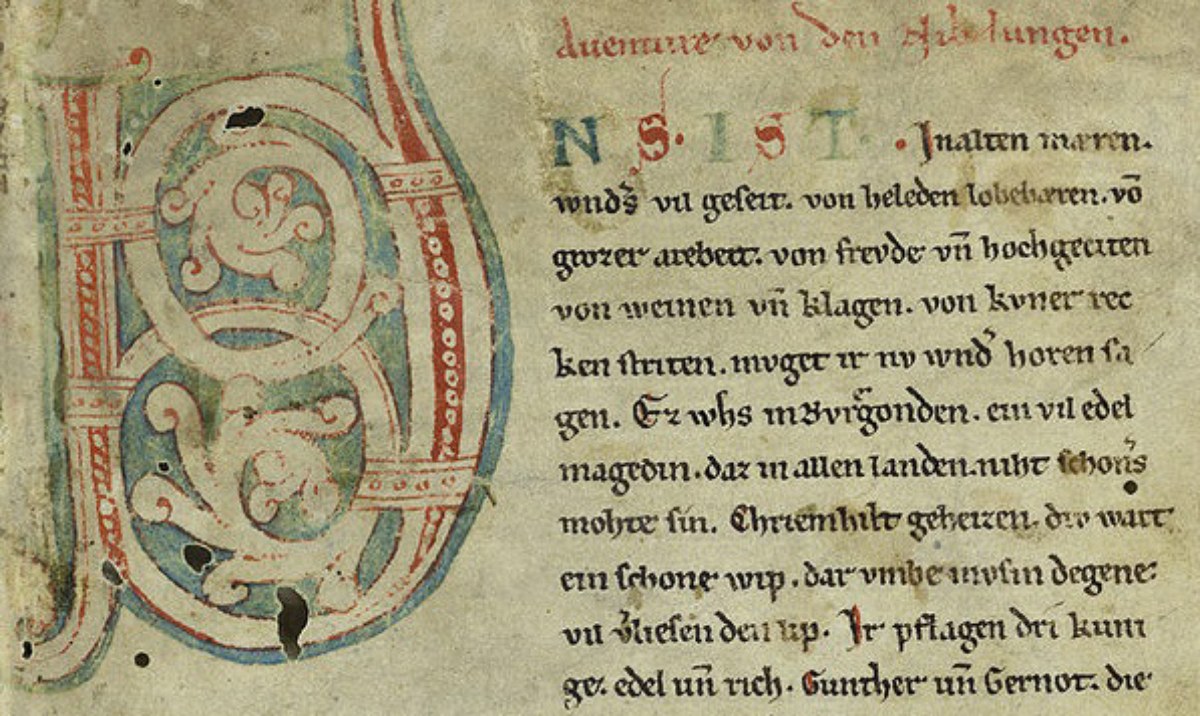 Auenture von den Nibelungen.
UNS. IST. · Inalten mæren.
wndˢ vil geseit. von heleden lobebæren. võ
grozer arebeit. von frevde vñ hochgeciten
von weinen vñ klagen. von kvner rec
ken striten. mvget ir nv wndˢ horen sa
gen. Ez whs inBvrgonden. ein vil edel
magedin. daz in allen landen. niht schonˢs
mohte sin. Chriemhilt geheizen. div wart
ein schone wip. dar vmbe mvsin degene
vil vˢliesen den lip. Ir pflagen dri kuni
ge. edel uñ rich. Gunther uñ Gernot. die